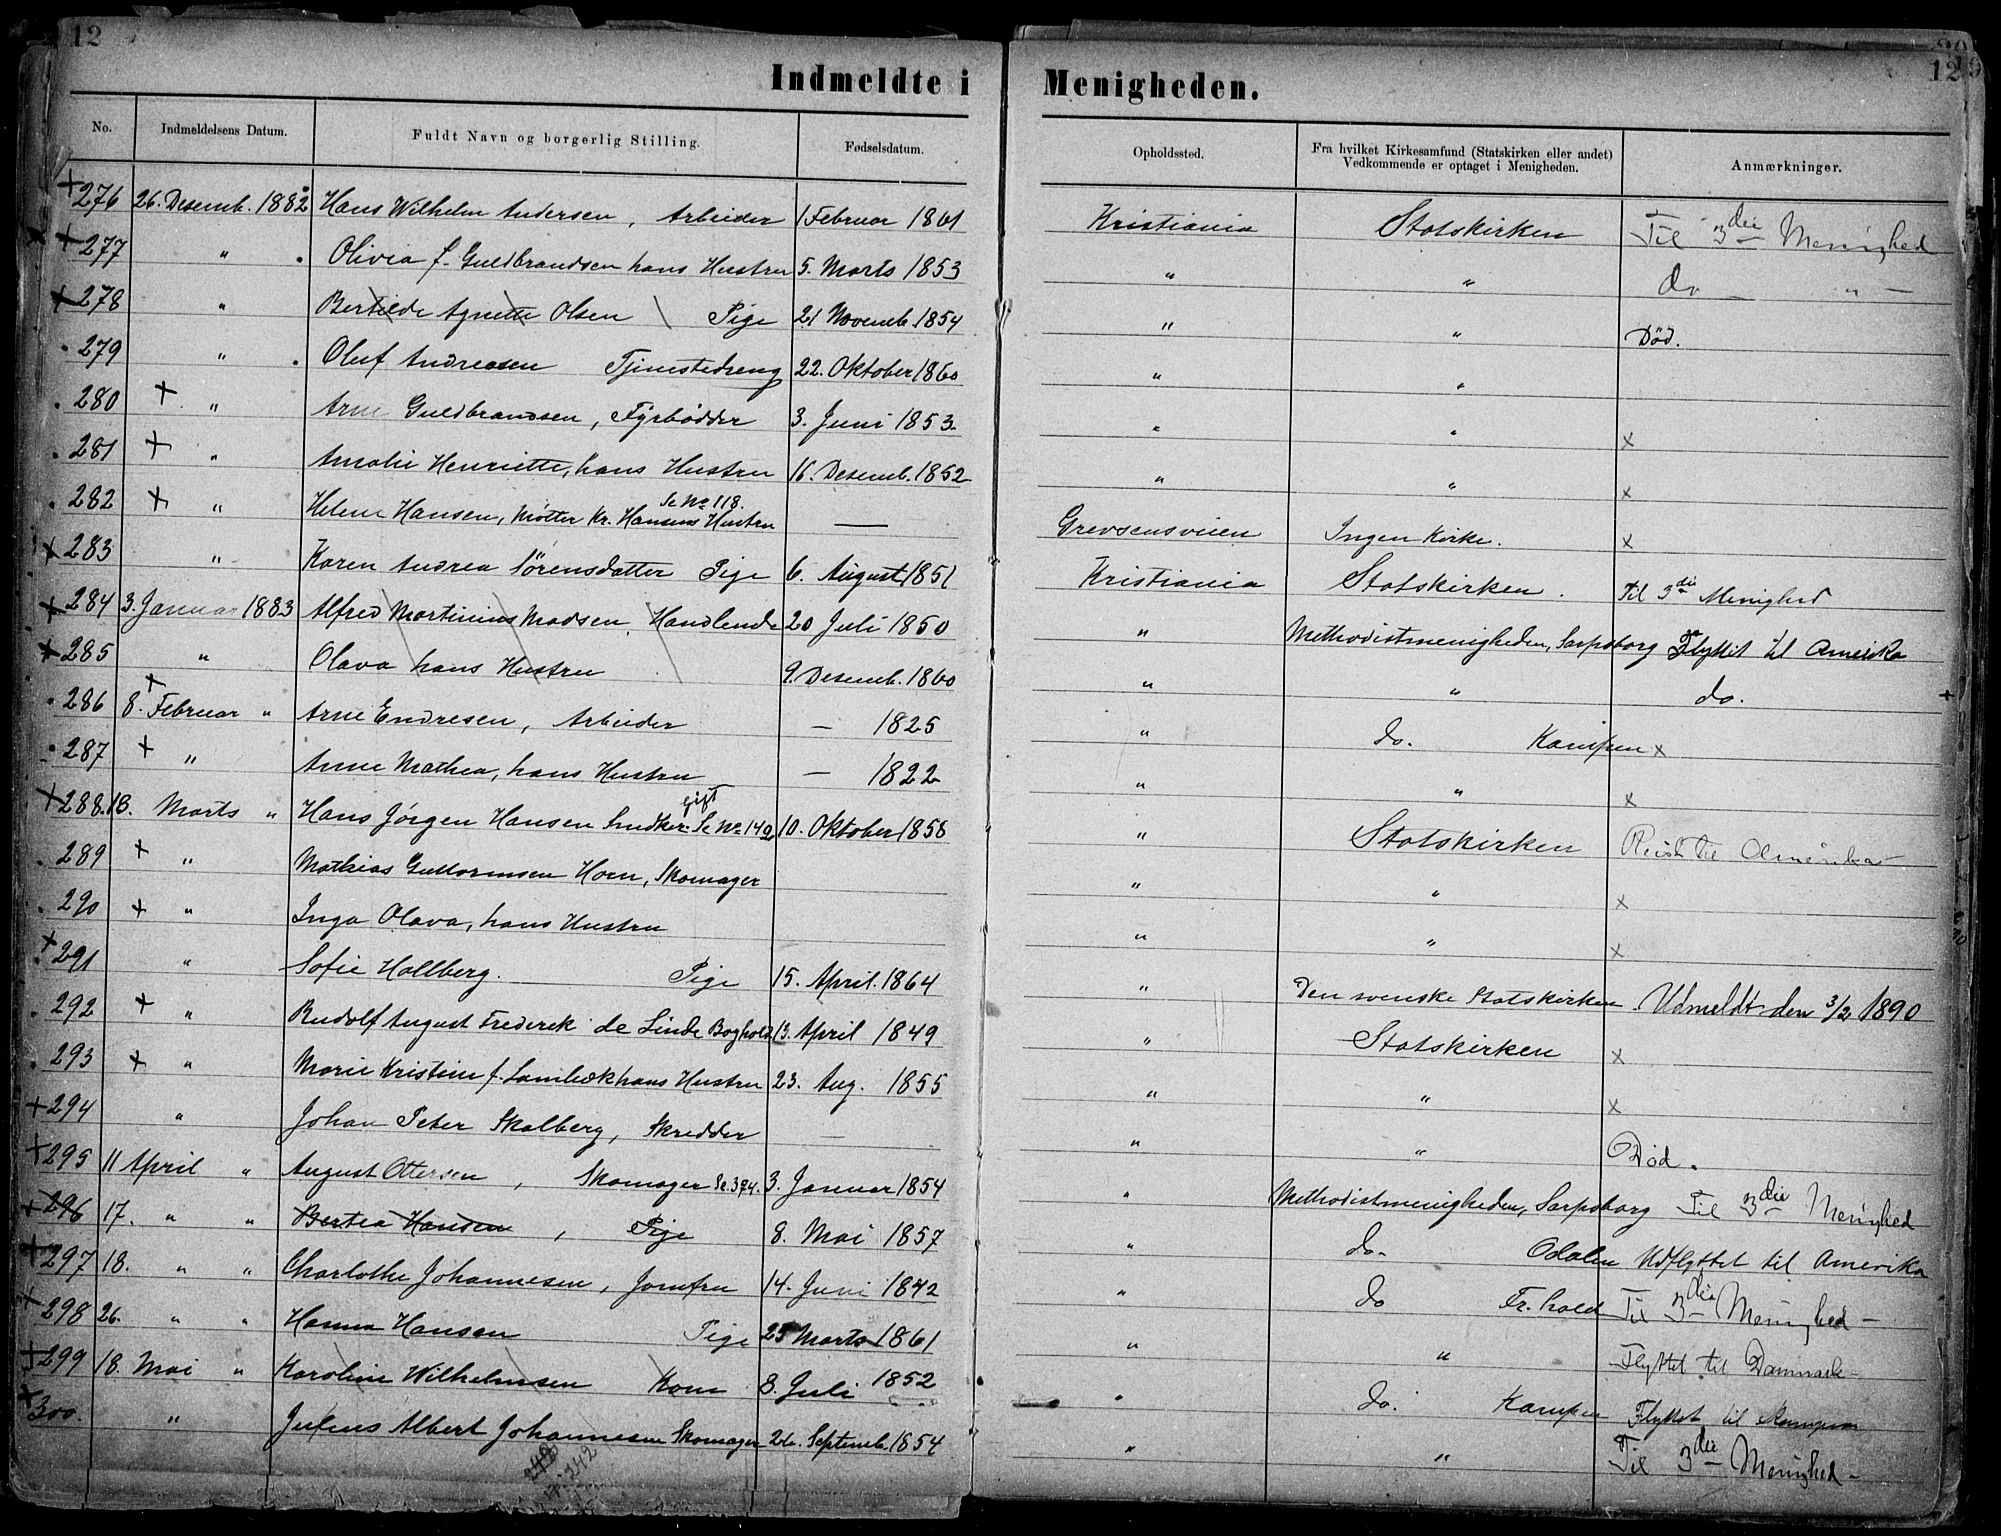 12
12
Indmeldte i Menigheden.
No. Indmeldelsens Datum. Fuldt Navn og borgerlig Stilling. Fødselsdatum. Opholdssted. Fra hvilket Kirkesamfund (Statskirken eller andet) Vedkommende er optaget i Menigheden. Anmærkninger.
+276 26. Desemb. 1882 Hans Wilhelm Andersen, Arbeider 1 Februar 1861 Kristiania Statskirken Til 3die Menighed
+277 " Olivia f. Guldbrandsen hans Hustru 5. Marts 1853 " " do — " —
+278 " Bertilde Agnette Olsen Pige 21 Novemb. 1854 " " Død.
279 " Oluf Andreasen Tjenestedreng 22. Oktober 1860 " "
280 + " Arne Guldbrandsen, Fyrbødder 3. Juni 1853 " " x
281 + " Amalie Henriette, hans Hustru 16. Desemb. 1852 " " x
282 + " Helene Hansen, Møller Kr. Hansens Hustru Se No 118. — Grevsensveien Ingen Kirke. x
+283 " Karen Andrea Sørensdatter Pige 6. August 1851 Kristiania Statskirken. Til 3die Menighed
+284 3. Januar 1883 Alfred Martinius Madsen, Handlende 20 Juli 1850 " Methodistmenigheden, Sarpsborg Flyttet til Amerika
+285 " Olava hans Hustru 9. Desemb. 1860 " " do.
286 8. Februar " Arne Endresen, Arbeider — 1825 " do. Kampen x
287 + " Anne Mathea, hans Hustru — 1822 " " x
+288. 13. Marts " Hans Jørgen Hansen Snedker. gift Se No 149 10. Oktober 1856 " Statskirken Reist til Amerika —
289 + " Mathias Guttormsen Horn, Skomager " " x
290 + " Inga Olava, hans Hustru " " x
+291 " Sofie Hollberg. Pige 15. April. 1864 " Den svenske Statskirken. Udmeldt den 3/2 1890
292 + " Rudolf August Frederek de Linde Boghold. 13. April 1849 " Statskirken x
293 + " Marie Kristine f. Lambæk hans Hustru 23. Aug. 1855 " " x
+294 " Johan Peter Skalberg, Skredder — " " Død.
+295 11 April " August Ottersen, Skomager Se. 374. 3. Januar 1854 " Methodistmenigheden, Sarpsborg Til 3die Menighed
+296 17. " " Bertea Hansen, Pige 8. Mai 1857 " do. Odalen Udflyttet til Amerika
+297 18. " " Charlothe Johannesen, Jomfru 14. Juni 1842 " do Fr.hald Til 3die Menighed —
+298 26. " " Hanna Hansen Pige 25 Marts 1861 " " Flyttet til Danmark —
+299 18. Mai " Karoline Wilhelmsen Kone 8. Juli 1852 " do. Kampen Flyttet til Kampen
+300. " Julius Albert Johannesen Skomager 26. Septemb. 1854 " " Til 3die Menighed —
242